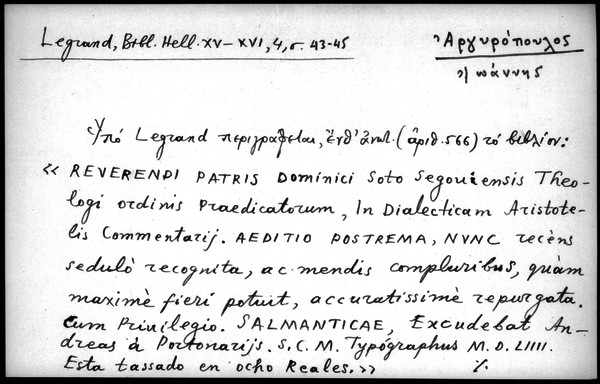 Legrand, Bibl. Hell. XV–XVI, 4, σ. 43-45
Ἀργυρόπουλος
Ἰωάννης
Ὑπό Legrand περιγράφεται, ἔνθ' ἀνωτ. (ἀριθ. 566) τό βιβλίον:
« REVERENDI PATRIS Dominici Soto Segouiensis Theo-
logi ordinis Praedicatorum, In Dialecticam Aristote-
lis Commentarij. AEDITIO POSTREMA, NVNC recèns
sedulò recognita, ac mendis compluribus, quàm
maximè fieri potuit, accuratissimè repurgata.
Cum Priuilegio. SALMANTICAE, Excudebat An-
dreas à Portonarijs. S. C. M. Typógraphus M. D. LIIII.
Esta tassado en ocho Reales. »
./.